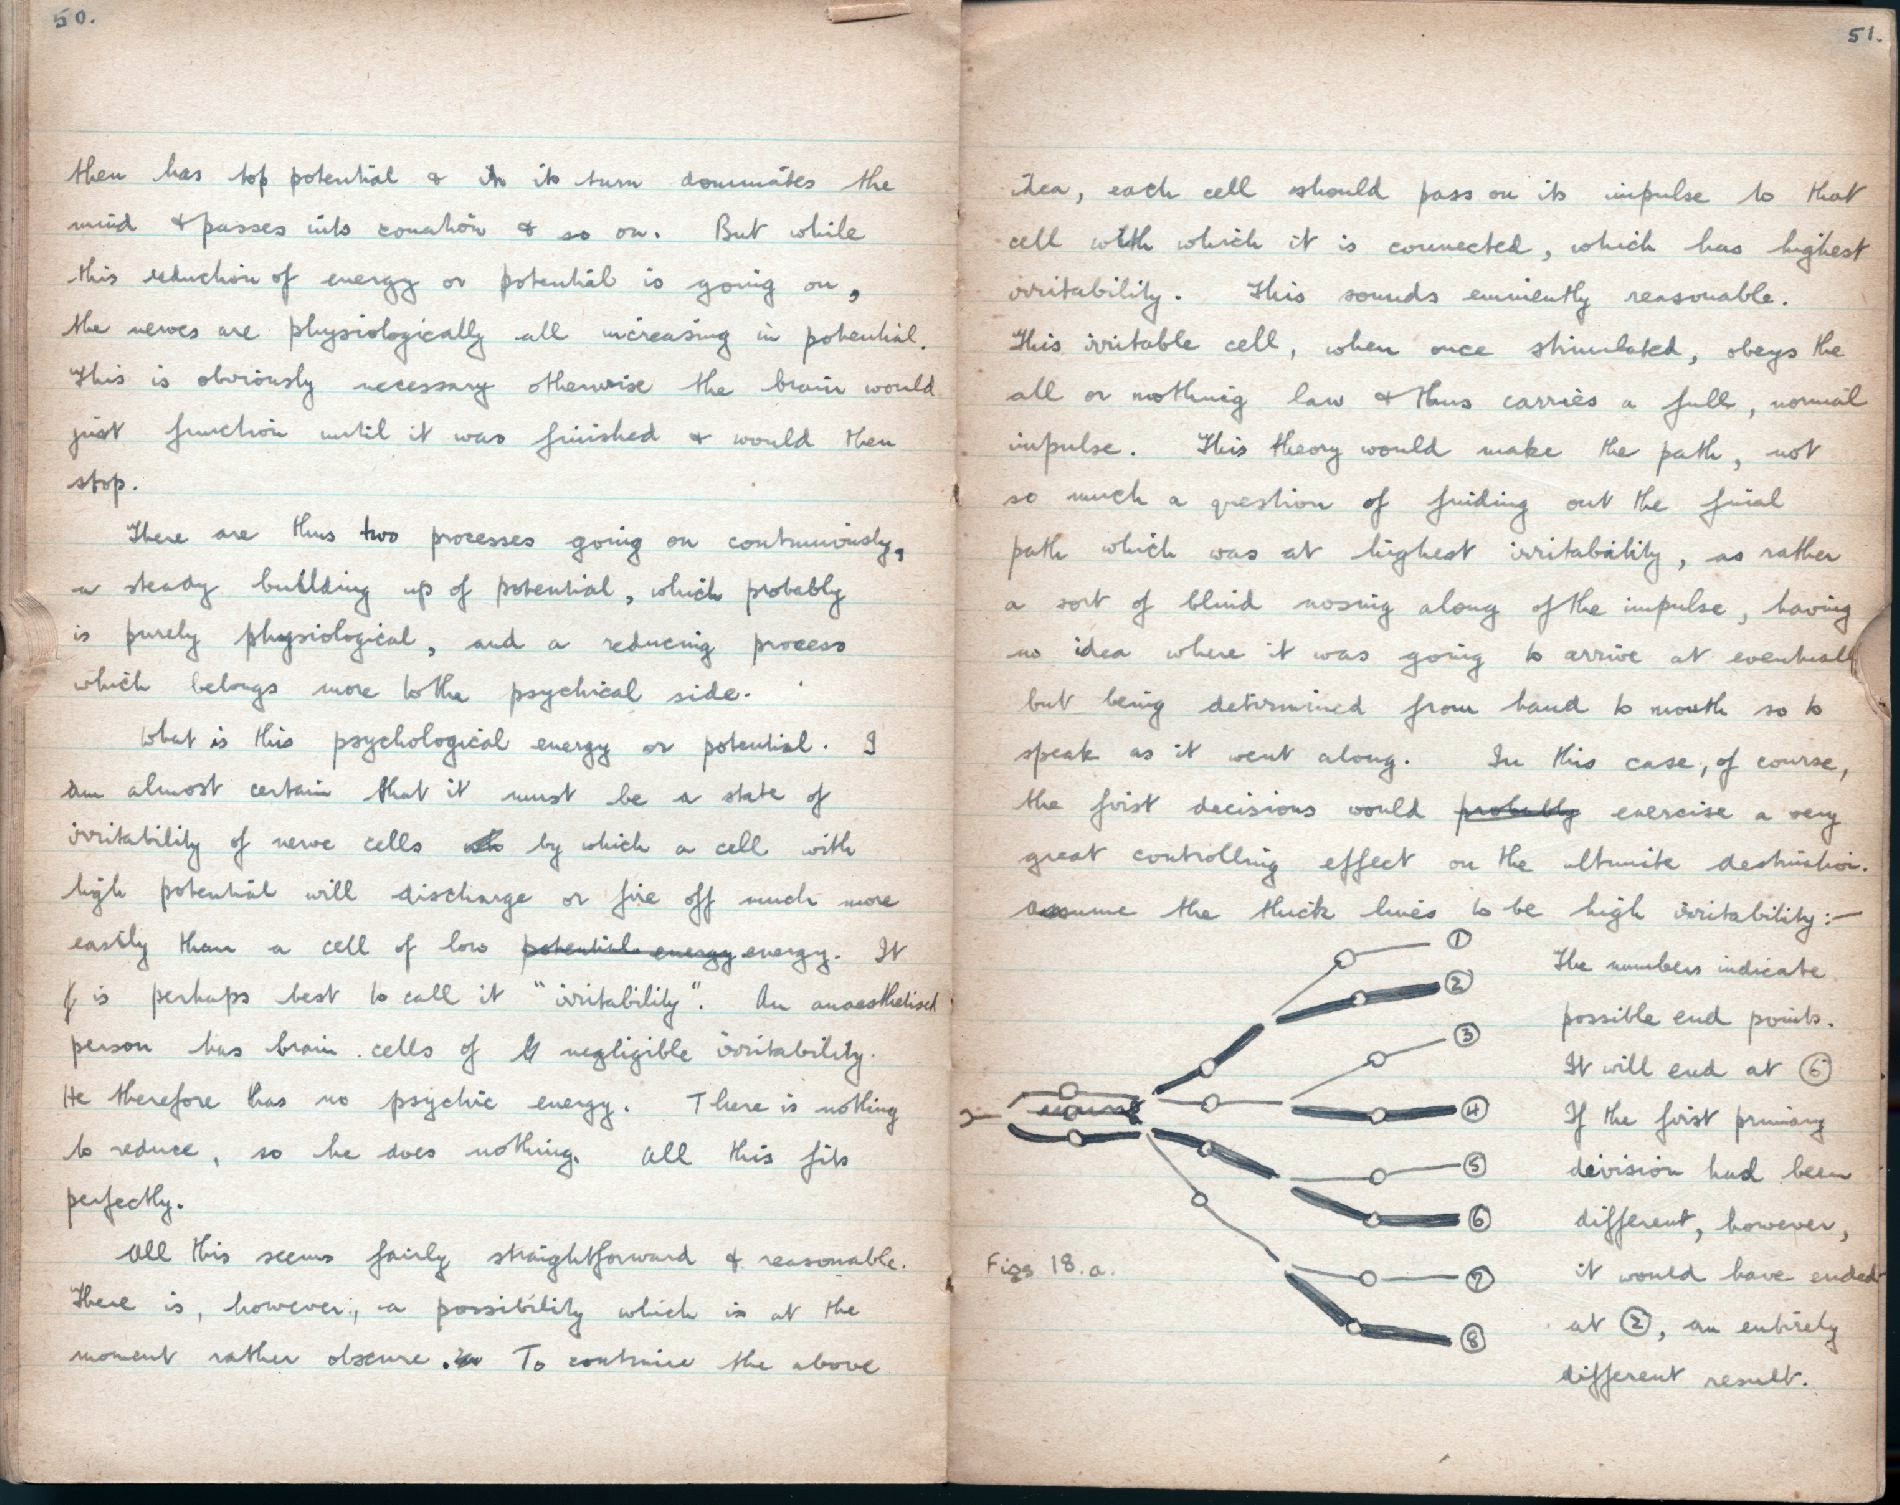 50.
then has top potential & in its turn dominates the
mind & passes into conation & so on. But while
this reduction of energy or potential is going on,
the nerves are physiologically all increasing in potential.
This is obviously necessary otherwise the brain would
just function until it was finished & would then
stop.
There are thus two processes going on continuously,
a steady building up of potential, which probably
is purely physiological, and a reducing process
which belongs more to the psychical side.
What is this psychological energy or potential. I
am almost certain that it must be a state of
irritability of nerve cells by which a cell with
high potential will discharge or fire off much more
easily than a cell of low potential energy energy. It
is perhaps best to call it "irritability". An anaesthetised
person has brain cells of negligible irritability.
He therefore has no psychic energy. There is nothing
to reduce, so he does nothing. All this fits
perfectly.
All this seems fairly straightforward & reasonable.
There is, however, a possibility which is at the
moment rather obscure. To continue the above
51.
idea, each cell should pass on its impulse to that
cell with which it is connected, which has highest
irritability. This sounds eminently reasonable.
This irritable cell, when once stimulated, obeys the
all or nothing law & thus carries a full, normal
impulse. This theory would make the path, not
so much a question of finding out the final
path which was at highest irritability, as rather
a sort of blind nosing along of the impulse, having
no idea where it was going to arrive at eventually
but being determined from hand to mouth so to
speak as it went along. In this case, of course,
the first decisions would probably exercise a very
great controlling effect on the ultimite destination.
Assume the thick lines to be high irritability:—
1
2
3
4
5
6
7
8
Figs 18.a.
The numbers indicate
possible end points.
It will end at 6
If the first primary
division had been
different, however,
it would have ended
at 2, an entirely
different result.